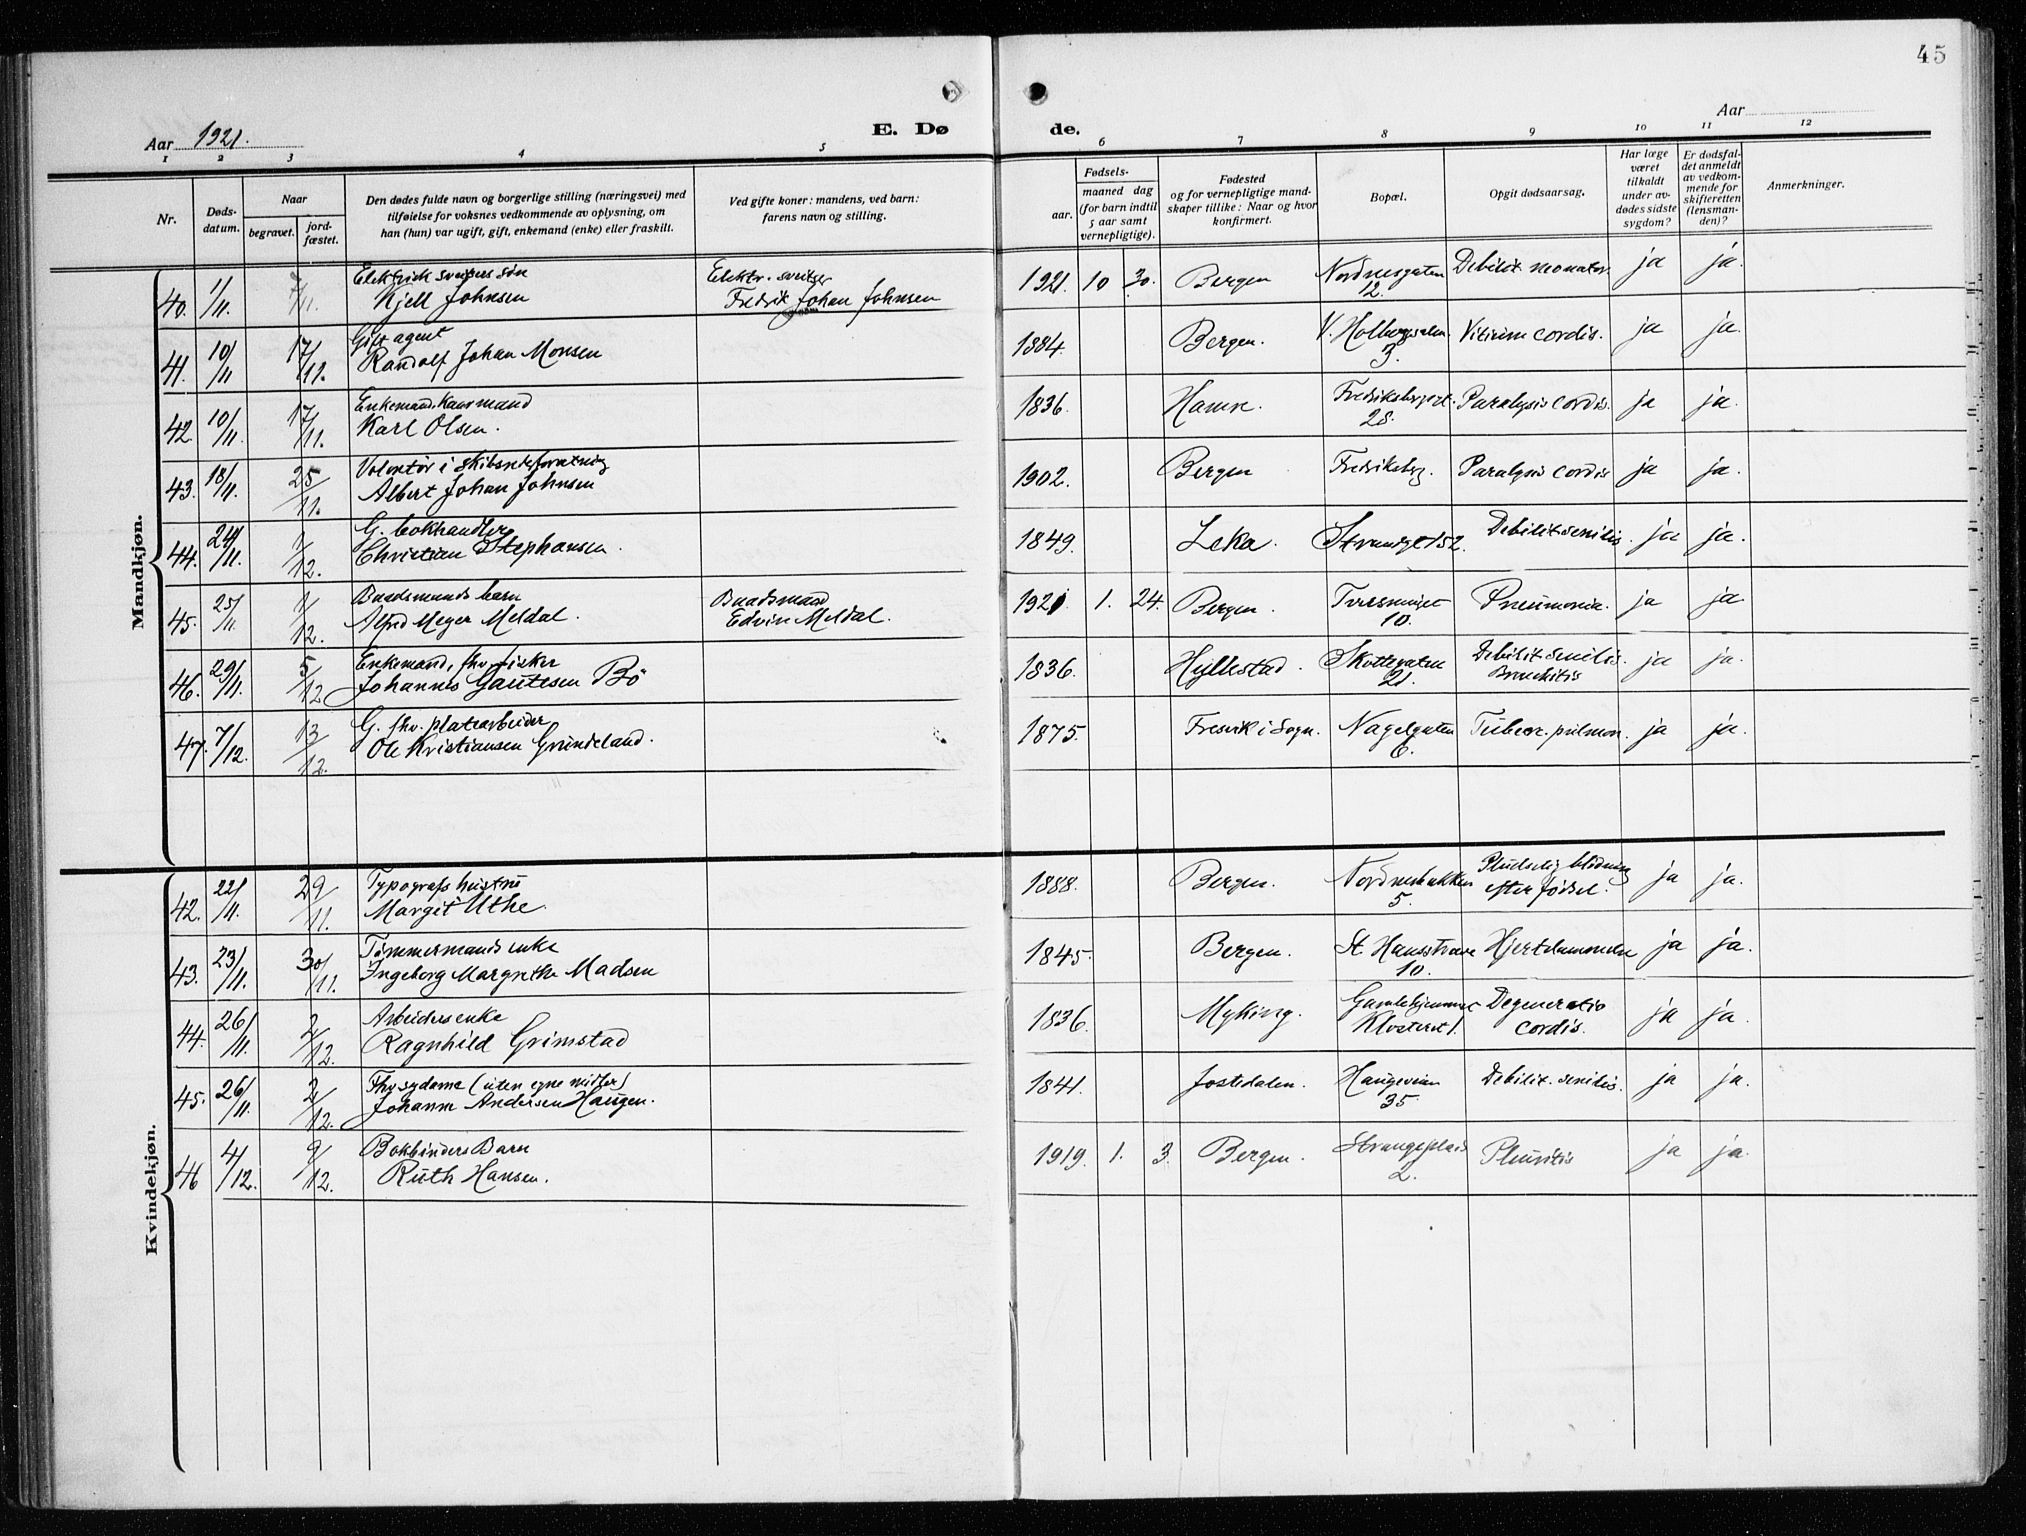 45
Aar 1921.
E. Dø
de.
Aar
1 2 3 4 5 6 7 8 9 10 11 12
Nr.
Døds-
datum.
Naar
begravet.
jord-
fæstet.
Den dødes fulde navn og borgerlige stilling (næringsvei) med
tilføielse for voksnes vedkommende av oplysning, om
han (hun) var ugift, gift, enkemand (enke) eller fraskilt.
Ved gifte koner: mandens, ved barn:
farens navn og stilling.
Fødsels-
aar.
maaned dag
(for barn indtil
5 aar samt
vernepligtige).
Fødested
og for vernepligtige mand-
skaper tillike: Naar og hvor
konfirmert.
Bopæl.
Opgit dødsaarsag.
Har læge
været
tilkaldt
under av-
dødes sidste
sygdom?
Er dødsfal-
det anmeldt
av vedkom-
mende for
skifteretten
(lensman-
den)?
Anmerkninger.
Mandkjøn.
40. 1/11. 7/11. Elektrisk søn
Kjell Johnsen
Elektr.
Fredrik Johan Johnsen
1921. 10 30. Bergen
Nordnesgaten
12.
Debilit. neonator. ja ja.
41. 10/11 17/11. Gift agent
Randolf Johan Monsen
1884. Bergen.
V. Holbergsalm.
3.
Vitium cordis. ja ja.
42. 10/11. 17/11. Enkemand. Kaupmand
Karl Olsen.
1836. Hamre.
28
Paralysis cordis. ja ja.
43. 18/11. 25/11. Volontør i skibsrederforretning
Albert Johan Johnsen
1902. Bergen
Fredriksbg.
Paralysis cordis ja ja.
44. 24/11. 1/12. G. bokhandler
Christian Stephansen.
1849. Leka.
Strandgt 152.
Debilit. senilis. ja ja.
45. 25/11 1/12. Baadsmands barn
Alfred Meyer Meldal.
Baadsmand
Edvin Meldal.
1921. 1. 24. Bergen.
10.
Pneumonia. ja ja
46. 29/11. 5/12 Enkemand, fhv. fisker
Johannes Gautesen Bö
1836. Hyllestad.
Skottegaten
21.
Debilit. senilis.
Bronchitis
ja ja.
47. 7/12. 13/12. G. fhv. platearbeider
Ole Kristiansen Grindeland.
1875. Fresvik i Sogn.
Nagelgaten
6.
Tuberc. pulmon. ja ja.
Kvindekjøn.
42. 22/11. 29/11. Typografs hustru
Margit Uthe.
1888. Bergen.
Nordnesbakken
5.
Pludselig blødning
efter fødsel. ja ja.
43. 23/11. 30/11. Tømmermands enke
Ingeborg Margrethe Madsen
1845. Bergen.
St. Hansstræde
10.
ja ja.
44. 26/11. 2/12. Arbeiders enke
Ragnhild Grimstad
1836. Myking.
Gamlehjemmet
Klosteret 1.
Degeneratio
cordis. ja ja.
45. 26/11. 2/12. Fhv sydame (uten egne midler)
Johanne Andersen Haugen.
1841. Jostedalen.
Haugeveien
35.
Debilit. senilis. ja ja.
46 4/12. 9/12. Bokbinders Barn
Ruth Hansen.
1919. 1. 3. Bergen.
Strangeplads
2.
Pleuritis ja ja.